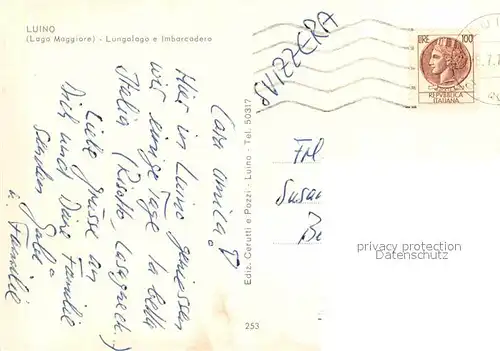 LUINO
(Lago Maggiore) - Lungolago e Imbarcadero
SVIZZERA
LIRE 100
REPVBBLICA
ITALIANA
Cara amica!
Hier in Luino geniessen
wir einige Tage la bella
Italia (Risotto, Lasagneeh...)
Liebe Grüsse an
Dich und Deine Familie
senden Gabi
u. Familie
Ediz. Cerutti e Pozzi - Luino - Tel. 50317
Frl
Susa
privacy protection
AnsichtskartenVersand.com
253